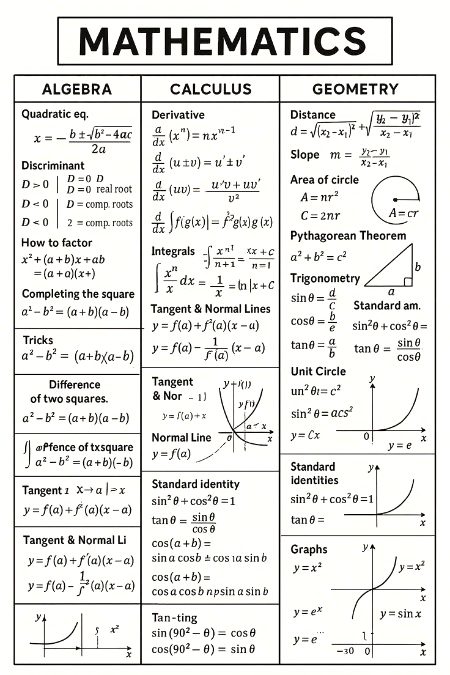 MATHEMATICS
ALGEBRA
Quadratic eq.
x = − b ± √b² − 4ac / 2a
Discriminant
D > 0 | D = 0 D
D = 0 real root
D < 0 | D = comp. roots
D < 0 | 2 = comp. roots
How to factor
x² + (a + b)x + ab
= (a + a)(x+)
Completing the square
a¹ − b² = (a + b)(a − b)
Tricks
a² − b² = (a + b)(a − b)
Difference
of two squares.
a² − b² = (a + b)(a − b)
of txsquare
a² − b² = (a + b)(−b)
Tangent 1 x → a | = x
y = f(a) + f′(a)(x − a)
Tangent & Normal Li
y = f(a) + f′(a)(x − a)
y = f(a) − 1/f′²(a)(x − a)
y
x²
x
CALCULUS
Derivative
a/dx (xⁿ) = nxⁿ⁻¹
d/dx (u ± v) = u′ ± v′
d/dx (uv) = u′v + uv′ / v²
d/dx ∫f(g(x)) = f²g(x)g(x)
Integrals
n + 1
n = 1
∫ xⁿ/x dx = 1/x = ln|x + C
Tangent & Normal Lines
y = f(a) + f²(a)(x − a)
y = f(a) − 1/f′(a) (x − a)
Tangent
& Nor − 1)
y = f(a) + x
Normal Line
y = f(a)
0
x
Standard identity
sin² θ + cos² θ = 1
tan θ = sin θ / cos θ
cos(a + b) =
sin a cosb ± cos ıa sin b
cos(a + b) =
cos a cos b npsin a sin b
Tan-ting
sin (90² − θ) = cos θ
cos(90² − θ) = sin θ
GEOMETRY
Distance
d = √(x₂ − x₁)² + √(y₂ − y₁)² / x₂ − x₁
Slope m = y₂ − y₁ / x₂ − x₁
Area of circle
A = nr²
C = 2nr
A = cr
Pythagorean Theorem
a² + b² = c²
b
a
Trigonometry
sin θ = d/c
Standard am.
cos θ = b/e
sin² θ + cos² θ =
tan θ = a/b
tan θ = sin θ / cos θ
Unit Circle
un² θı = c²
sin² θ = acs²
y = Cx
y
0
x
y = e
Standard
identities
sin² θ + cos² θ = 1
tan θ =
y
x
Graphs
y = x²
y
y = x²
x
y = eˣ
y = sin x
y = e
1
−30
0
x